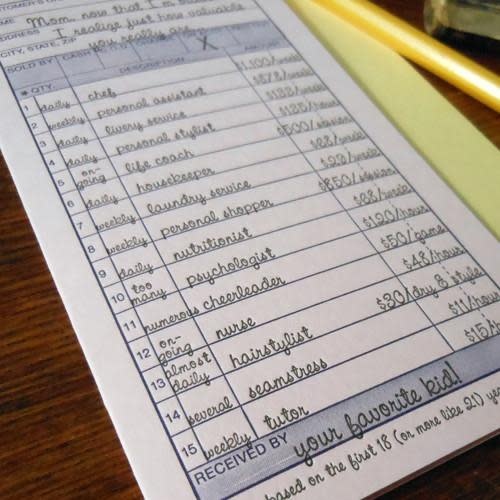 CUSTOMER'S
Mom, now that I'm
ADDRESS I realize just how valuable
CITY, STATE, ZIP you really are
SOLD BY CASH X
# QTY. DESCRIPTION AMOUNT
1 daily chef $1,100/week
2 weekly personal assistant
3 daily livery service
4 daily personal stylist $125/hour
5 on-going life coach $500/session
6 daily housekeeper
7 weekly laundry service
8 weekly personal shopper $850/session
9 daily nutritionist $88/week
10 too many psychologist $120/hour
11 numerous cheerleader $50/game
12 on-going nurse $48/hour
13 almost daily hairstylist $30/dry & style
14 several seamstress $11/hour
15 weekly tutor $15/h
RECEIVED BY your favorite kid!
based on the first 18 (or more like 21)